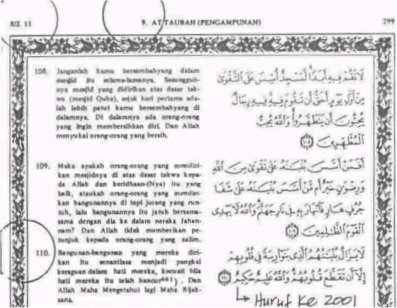 JUZ 11
9. AT TAUBAH (PENGAMPUNAN)
299
108. Janganlah kamu bersembahyang dalam
mesjid itu selama-lamanya. Sesungguh-
nya mesjid yang didirikan atas dasar tak-
wa (mesjid Quba), sejak hari pertama ada-
lah lebih patut kamu bersembahyang di
dalamnya. Di dalamnya ada orang-orang
yang ingin membersihkan diri. Dan Allah
menyukai orang-orang yang bersih.
لَا تَقُمْ فِيهِ أَبَدًا لَمَسْجِدٌ أُسِّسَ عَلَى التَّقْوَىٰ
مِنْ أَوَّلِ يَوْمٍ أَحَقُّ أَنْ تَقُومَ فِيهِ فِيهِ رِجَالٌ
يُحِبُّونَ أَنْ يَتَطَهَّرُوا وَاللَّهُ يُحِبُّ
الْمُطَّهِّرِينَ
109. Maka apakah orang-orang yang mendiri-
kan mesjidnya di atas dasar takwa kepa-
da Allah dan keridhaan-(Nya) itu yang
baik, ataukah orang-orang yang mendiri-
kan bangunannya di tepi jurang yang run-
tuh, lalu bangunannya itu jatuh bersama-
sama dengan dia ke dalam neraka Jahan-
nam? Dan Allah tidak memberikan pe-
tunjuk kepada orang-orang yang zalim.
أَفَمَنْ أَسَّسَ بُنْيَانَهُ عَلَى تَقْوَىٰ مِنَ اللَّهِ
وَرِضْوَانٍ خَيْرٌ أَمْ مَنْ أَسَّسَ بُنْيَانَهُ عَلَى شَفَا
جُرُفٍ هَارٍ فَانْهَارَ بِهِ فِي نَارِ جَهَنَّمَ وَاللَّهُ لَا يَهْدِي
الْقَوْمَ الظَّالِمِينَ
110. Bangunan-bangunan yang mereka diri-
kan itu senantiasa menjadi pangkal
keraguan dalam hati mereka, kecuali bila
hati mereka itu telah hancur⁶⁶¹). Dan
Allah Maha Mengetahui lagi Maha Bijak-
sana.
لَا يَزَالُ بُنْيَانُهُمُ الَّذِي بَنَوْا رِيبَةً فِي قُلُوبِهِمْ
إِلَّا أَنْ تَقَطَّعَ قُلُوبُهُمْ وَاللَّهُ عَلِيمٌ حَكِيمٌ
Huruf ke 2001